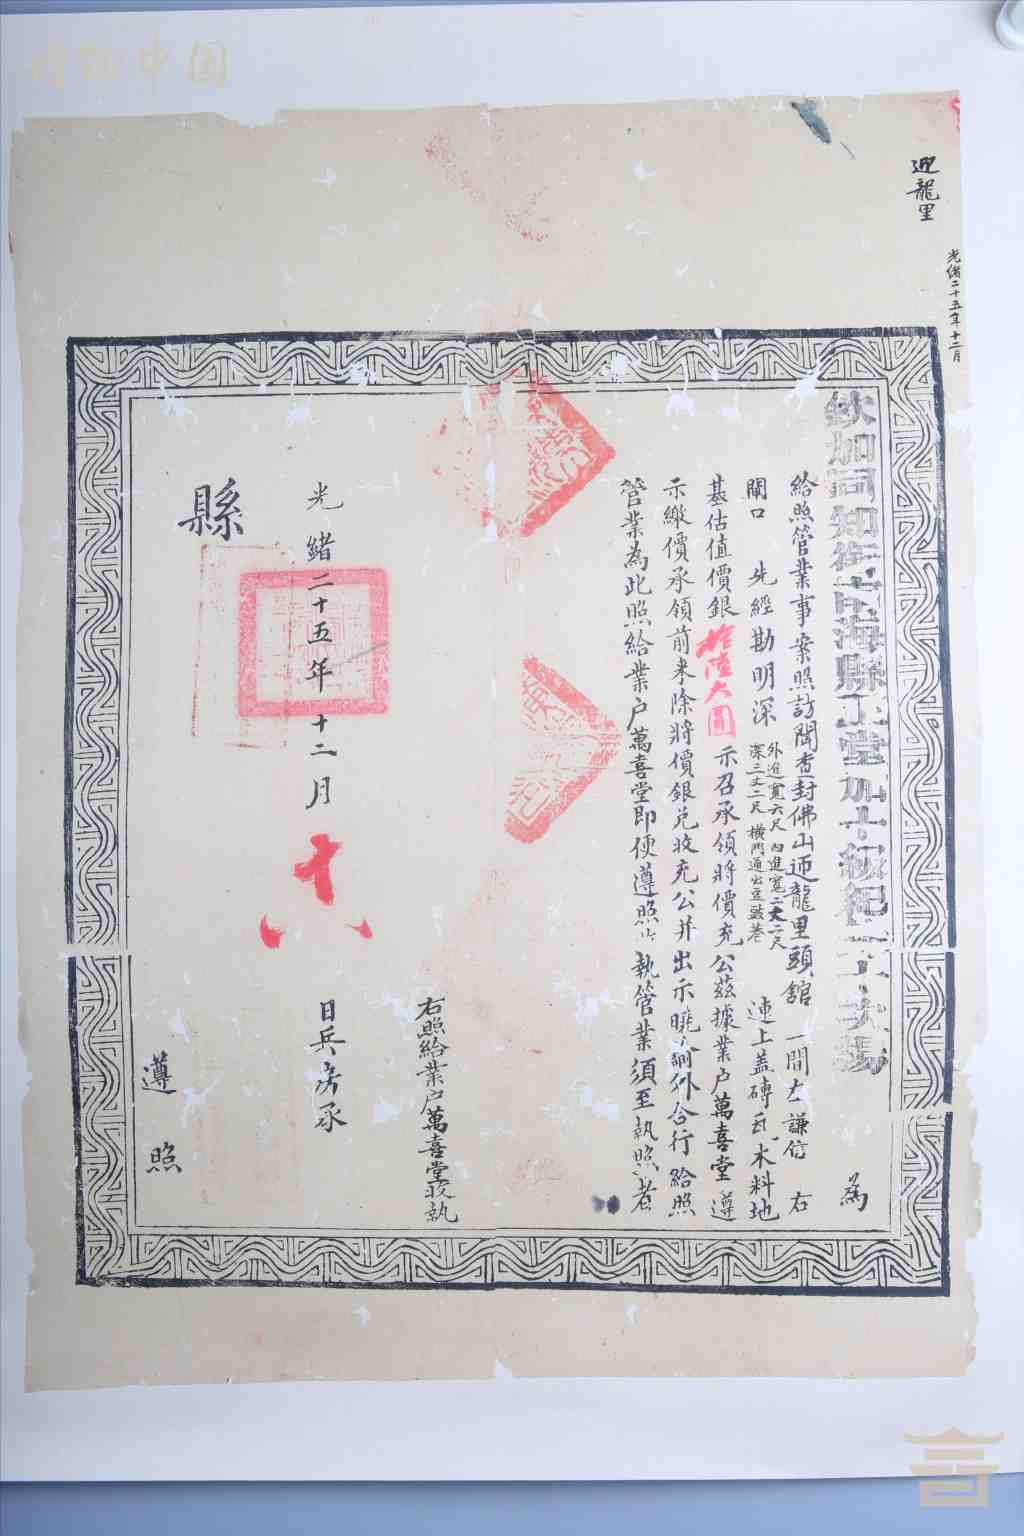 迎龍里
光緒二十五年十二月
欽加同知銜南海縣正堂加十級紀錄十次楊 為
給照管業事案照訪聞查封佛山迎龍里頭館 一間左謙信 右
閘口 先經勘明深 外進寬六尺內進寬二丈二尺
深三丈二尺橫門通出豆豉巷 連上盖磚瓦木料地
基估值價銀拾陸大圓示召承領將價充公茲據業户萬喜堂遵
示繳價承領前來除將價銀兑收充公并出示曉諭外合行給照
管業為此照給業户萬喜堂即便遵照 執管業須至執照者
右照給業户萬喜堂收執
光緒二十五年十二月十八日兵房承
縣
遵照
中国